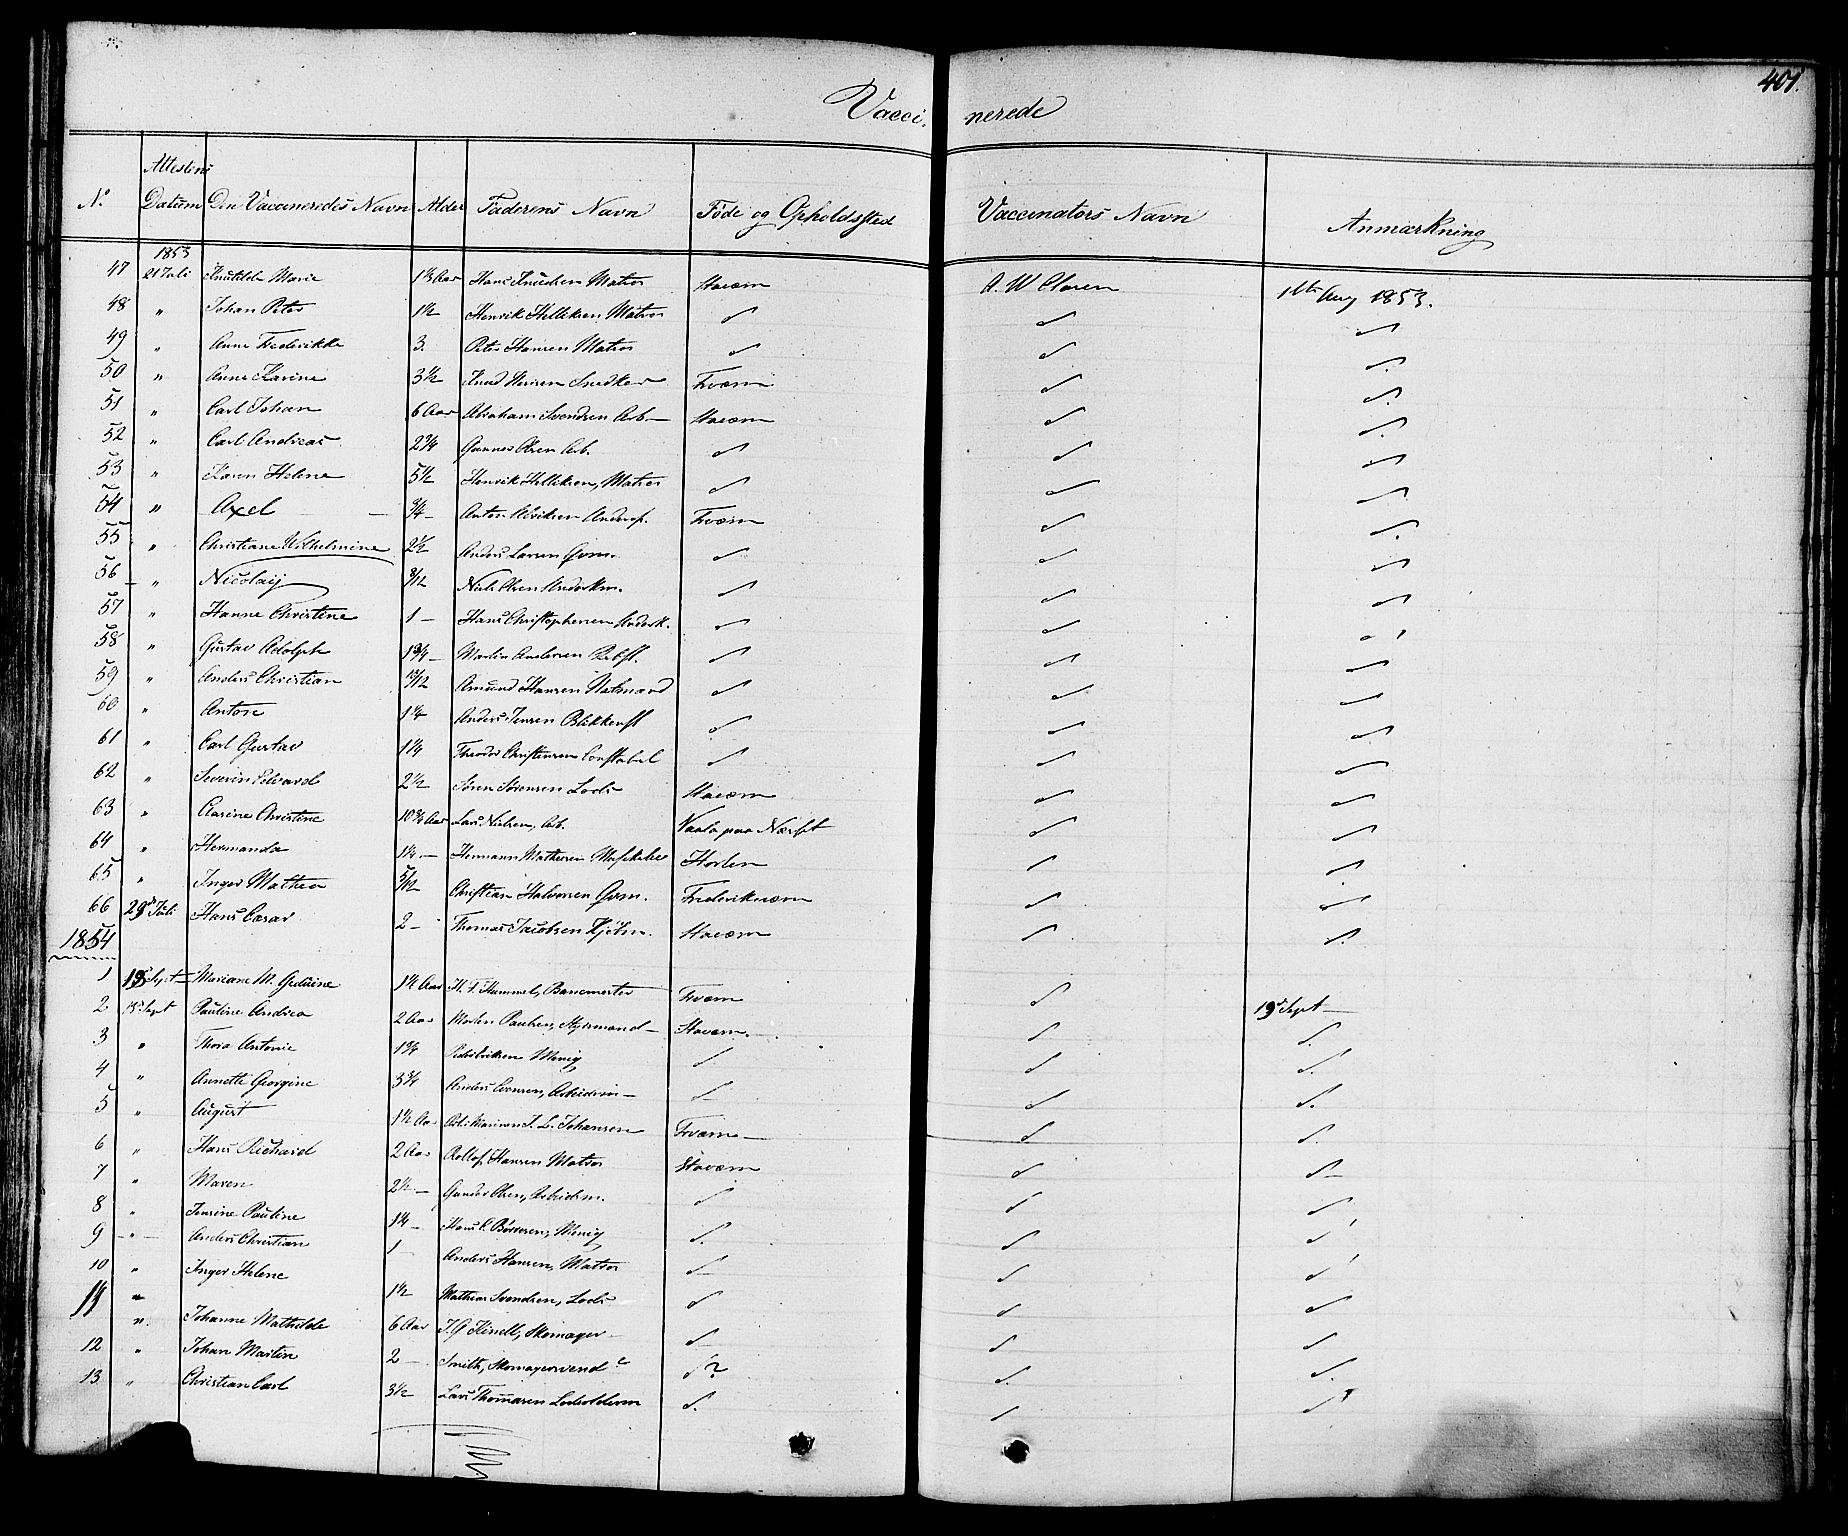 401.
Vacci- nerede
No. Attestens Datum Den Vaccineredes Navn Alder Faderens Navn Føde og Opholdssted Vaccinators Navn Anmærkning
1853
47 21 Juli Knutilde Marie 1½ Aar Hans Knudsen Matros Staværn A. W Claren 1ste Aug 1853.
48 " Johan Peter 1½ Henrik Helliksen Matros
49 " Anne Frederikke 3. Peter Hansen Matros
50 " Anne Karine 3½ Knud Iversen Snedker Fværn
51 " Carl Johan 6 Aar Abraham Svendsen Arb- Staværn
52 " Carl Andreas 2¾ Gunner Olsen Arb.
53 " Karen Helene 5½ Henrik Helliksen, Matros
54 " Axel ¾ - Anton Ulriksen Underof. Fværn
55 " Christiane Wilhelmine 2½ Anders Larsen Qvm.
56 " Nicolaij 9/12 Niels Olsen Underkm.
57 " Hanne Christine 1 - Hans Christophersen Underk.
58 " Gustav Adolph 1¾ - Martin Andersen Rebsl.
59 " Anders Christian 10/12 Amund Hansen
60 " Anton 1¼ Anders Jensen Blikkensl
61 " Carl Gustav 1¼ Theodor Christensen Constabel
62 " Severin Edvard 2½ Søren Sørensen Lods Staværn
63 " Carine Christine 10¾ Aar Lars Nielsen, Arb. Vaala paa Nærst
64 " Hermanda 1¼ - Hermann Mathesen Horten
65 " Inger Mathea 5/12 Christian Halvorsen Qvm. Frederiksværn
66 29 Juli Hans Cæsar 2 - Thomas Jacobsen Staværn
1854
1 19 Sept - Mariane M. Gedsine 1½ Aar H. F. Hummel, Banemester Fværn 19 Sept -
2 19 Sept Pauline Andrea 2 Aar Morten Paulsen, Styrmand - Staværn.
3 " Thora Antonie 1¾ Menig
4 " Annette Georgine 3¾ Anders Evensen, Arbeidsm -
5 " August 1½ Aar J. L. Johansen Fværn -
6 " Hans Richard 2 Aar Rollof Hansen Matros Staværn
7 " Maren 2½ - Gunder Olsen, Arbeidsm.
8 " Jensine Pauline 1¼ - Hans C. Børresen, Menig
9 " Anders Christian 1 Anders Hansen, Matros
10 " Inger Helene 1½ Mathias Svendsen, Lods
11 " Johanne Mathilde 6 Aar J. G Kinell, Skomager
12 " Johan Martin 2 - Smith, Skomagersvend ?
13 " Christian Carl 3½ Lars Thomasen Lodsolderm